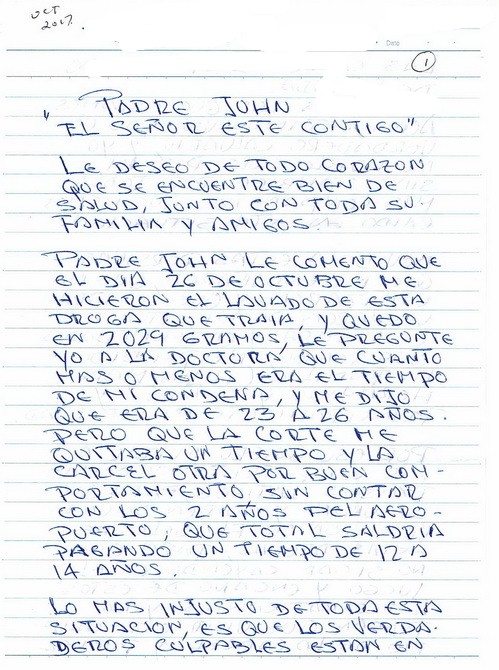 OCT
2017.
Date
1
PADRE JOHN
"EL SEÑOR ESTE CONTIGO"
LE DESEO DE TODO CORAZON
QUE SE ENCUENTRE BIEN DE
SALUD, JUNTO CON TODA SU
FAMILIA Y AMIGOS.
PADRE JOHN LE COMENTO QUE
EL DIA 26 DE OCTUBRE ME
HICIERON EL LAVADO DE ESTA
DROGA QUE TRAIA, Y QUEDO
EN 2029 GRAMOS, LE PREGUNTE
YO A LA DOCTORA, QUE CUANTO
MAS O MENOS ERA EL TIEMPO
DE MI CONDENA, Y ME DIJO
QUE ERA DE 23 A 26 AÑOS.
PERO QUE LA CORTE ME
QUITABA UN TIEMPO Y LA
CARCEL OTRA POR BUEN COM-
PORTAMIENTO, SIN CONTAR
CON LOS 2 AÑOS DEL AERO-
PUERTO, QUE TOTAL SALDRIA
PAGANDO UN TIEMPO DE 12 A
14 AÑOS.
LO MAS INJUSTO DE TODA ESTA
SITUACION, ES QUE LOS VERDA-
DEROS CULPABLES ESTAN EN